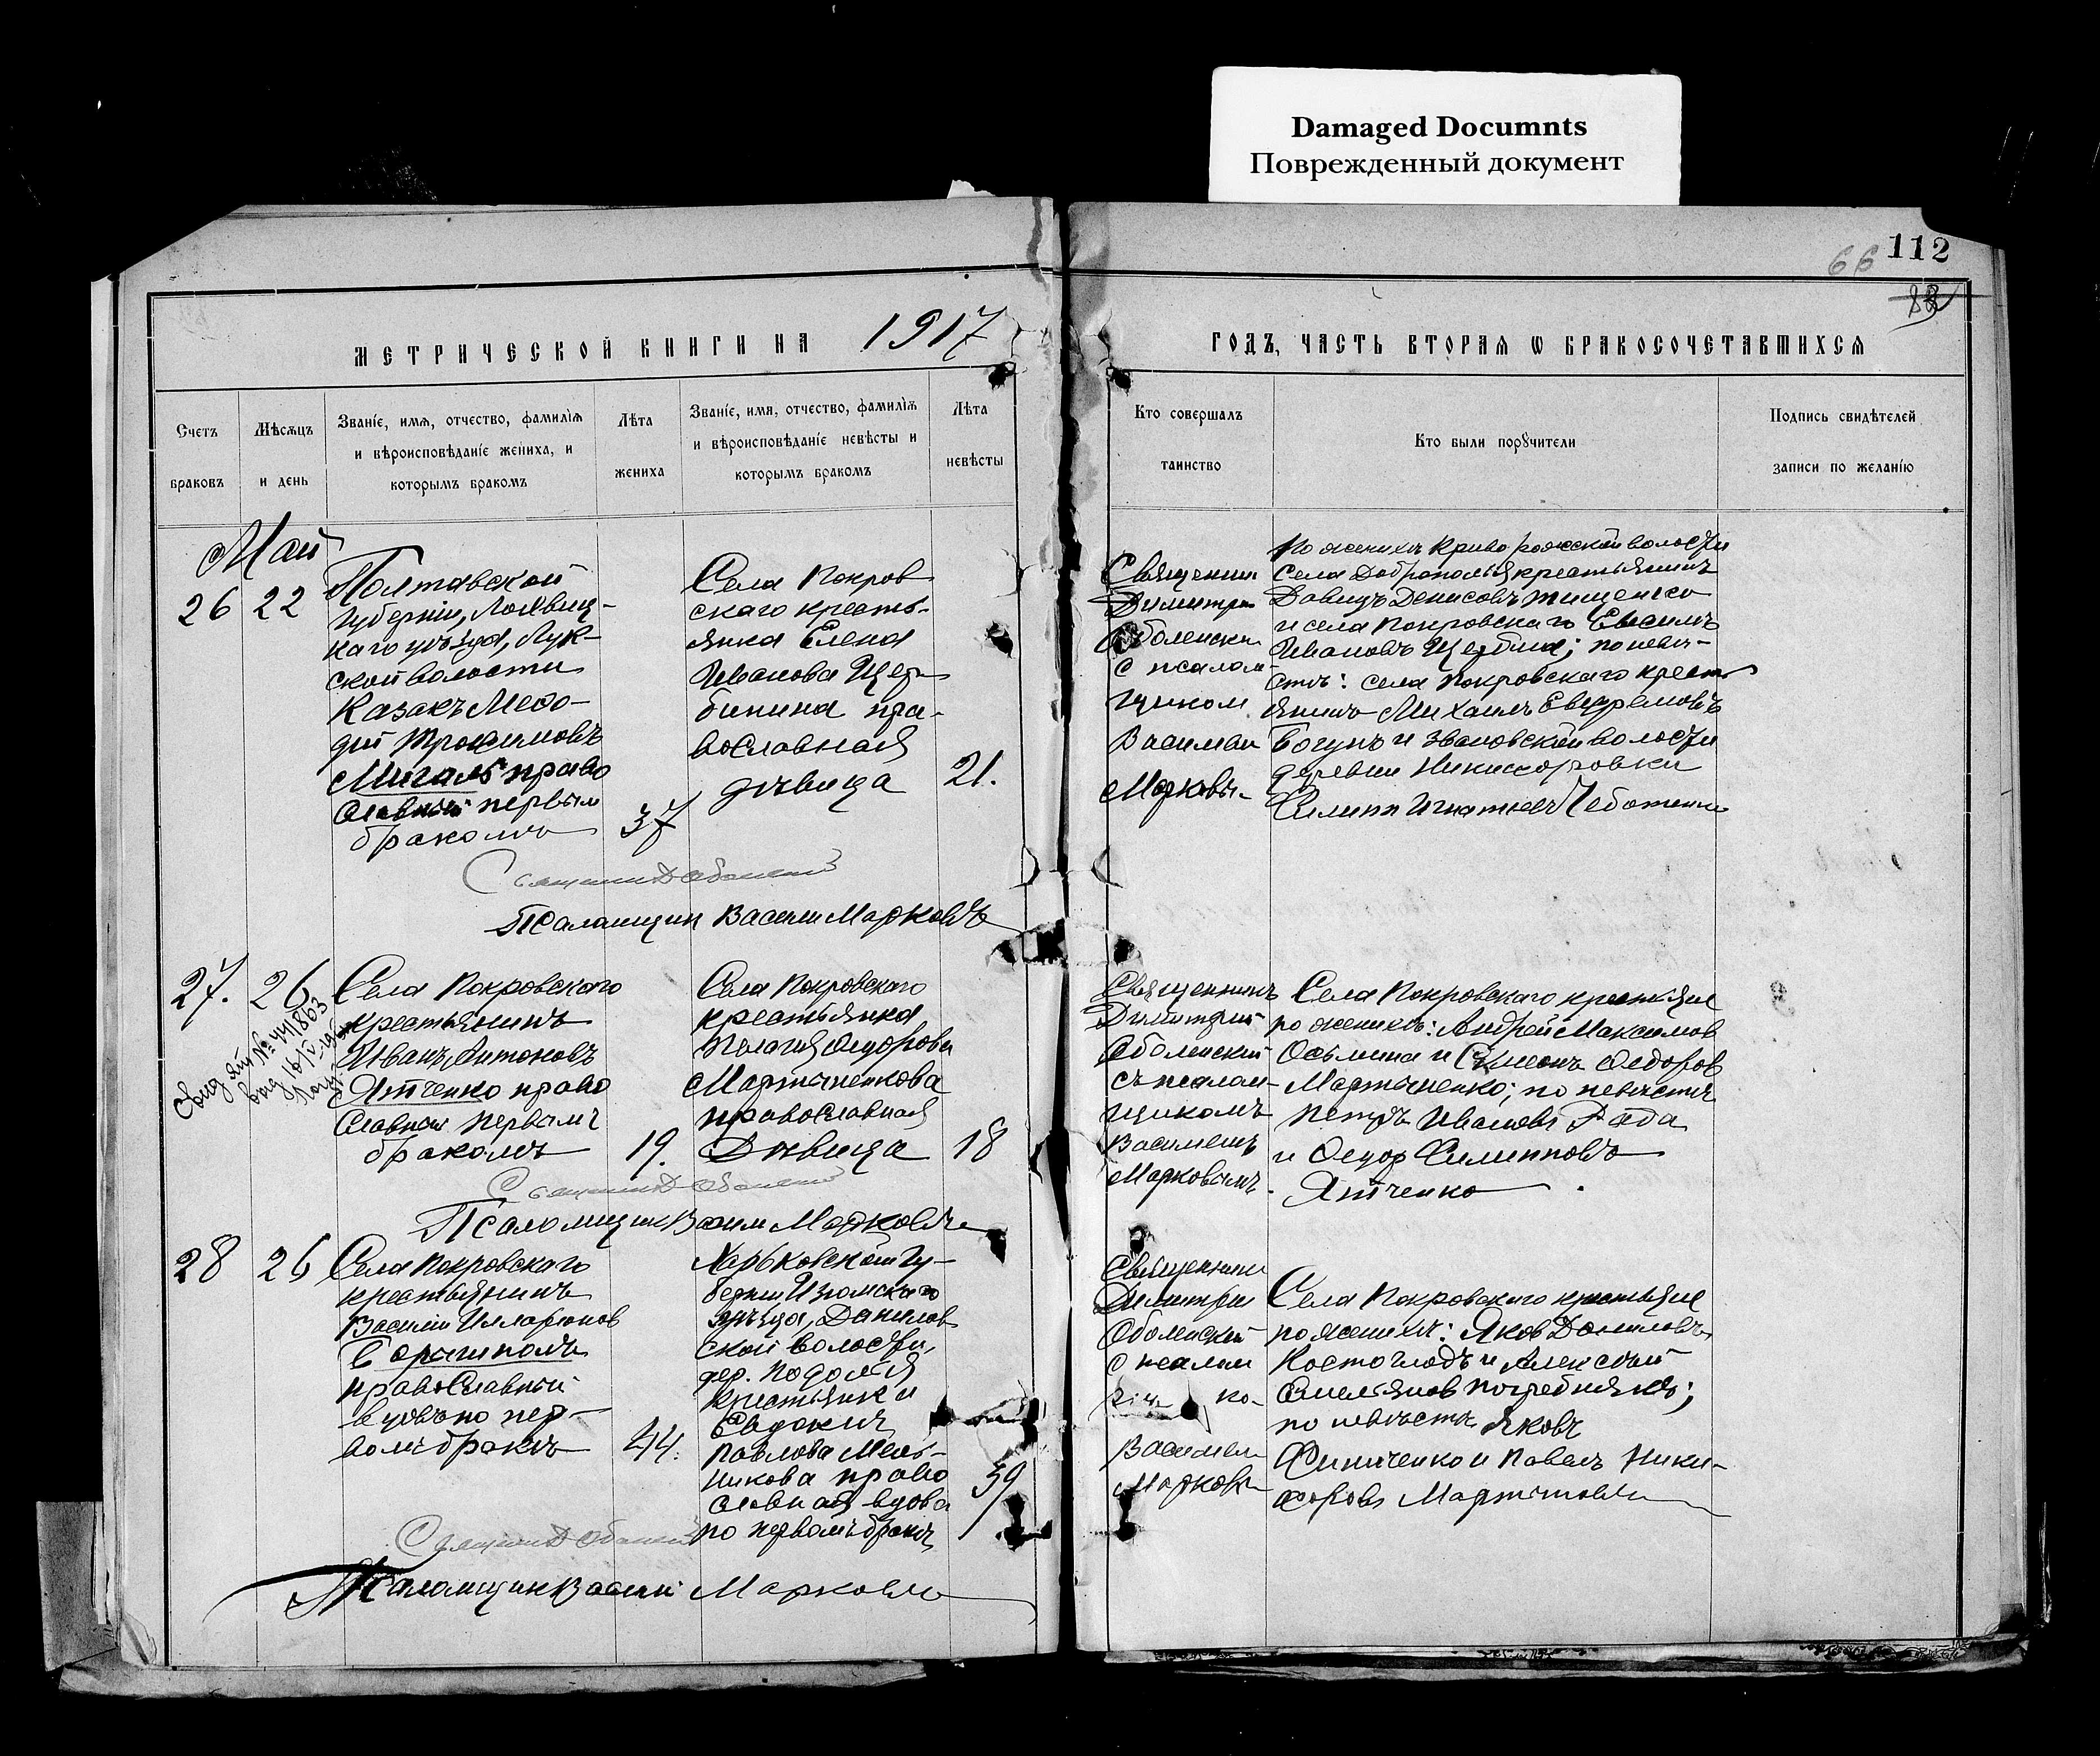 Damaged Documnts
Поврежденный документ
66 112
МЕТРИЧЕСКОЙ КНИГИ НА 1917
ГОДЪ, ЧАСТЬ ВТОРАЯ Ѡ БРАКОСОЧЕТАВШИХСЯ
Счетъ
браковъ
Мѣсяцъ
и день
Званіе, имя, отчество, фамилія
и вѣроисповѣданіе жениха, и
которымъ бракомъ
Лѣта
жениха
Званіе, имя, отчество, фамилія
и вѣроисповѣданіе невѣсты и
которымъ бракомъ
Лѣта
невѣсты
Кто совершалъ
таинство
Кто были порꙋчители
Подпись свидѣтелей
записи по желанію
Май
26
22
Полтавской
губерніи, Лохвиц-
каго уѣзда, Лук-
ской волости
Казакъ Мефо-
дій Трофимовъ
право
славный первым
бракомъ
37
Села Покров
скаго кресть-
янка Елена
Иванова Щер
бинина пра-
вославная
дѣвица
21.
Священни
Димитри
Оболенски
с псалом
щиком
Василіи
Марковы
По женихѣ Криворожской волости
села Доброполья крестьянинъ
Давидъ Денисовъ Тищенко
и села Покровскаго
Ивановъ Щербина; по невѣ-
стѣ: села Покровскаго кресть
янинъ Михаилъ Евфремовъ
Богунъ и Звановской волости
деревни Никифоровки
Филипп Игнатіев
Псаломщик Василій Марковъ
27.
26
Свид. № 441863
Села Покровскаго
крестьянинъ
Иванъ Антоновъ
Ятченко право
славный первымъ
бракомъ
19.
Села Покровскаго
крестьянка
Пелагія Федорова
Мартыненкова
православная
Дѣвица
18
Священникъ
Димитрій
Оболенскій
съ псалом-
щикомъ
Василіемъ
Марковымъ.
Села Покровскаго крестьяне
по женихѣ: Андрей Максимов
Осьмина и Симеонъ Федоров
Мартыненко; по невѣстѣ
Петръ Ивановъ Ряда
и Федор Филипповъ
Ятченко
Псаломщик Василий Марковъ
28
26
Села Покровскаго
крестьянинъ
Василій Илларіонов
православный
вдовъ по пер-
вомъ бракѣ
44.
Харьковской Гу-
берніи Изюмскаго
уѣзда, Данилов
ской волости,
дер. Подолья
крестьянка
Евдокия
Павлова Мель-
никова право
славная вдова
по первомъ бракѣ
39
Священник
Димитри
Оболенскій
с псалом
ко-
Василием
Марковы
Села Покровскаго крестьяне
по женихѣ: Яков Даниловъ
Костоглодъ и Алексѣй
Емельянов Погребнякъ;
по невѣстѣ Яковъ
Финиченко и Павелъ Ники-
форовъ
Псаломщик Василій Марковъ